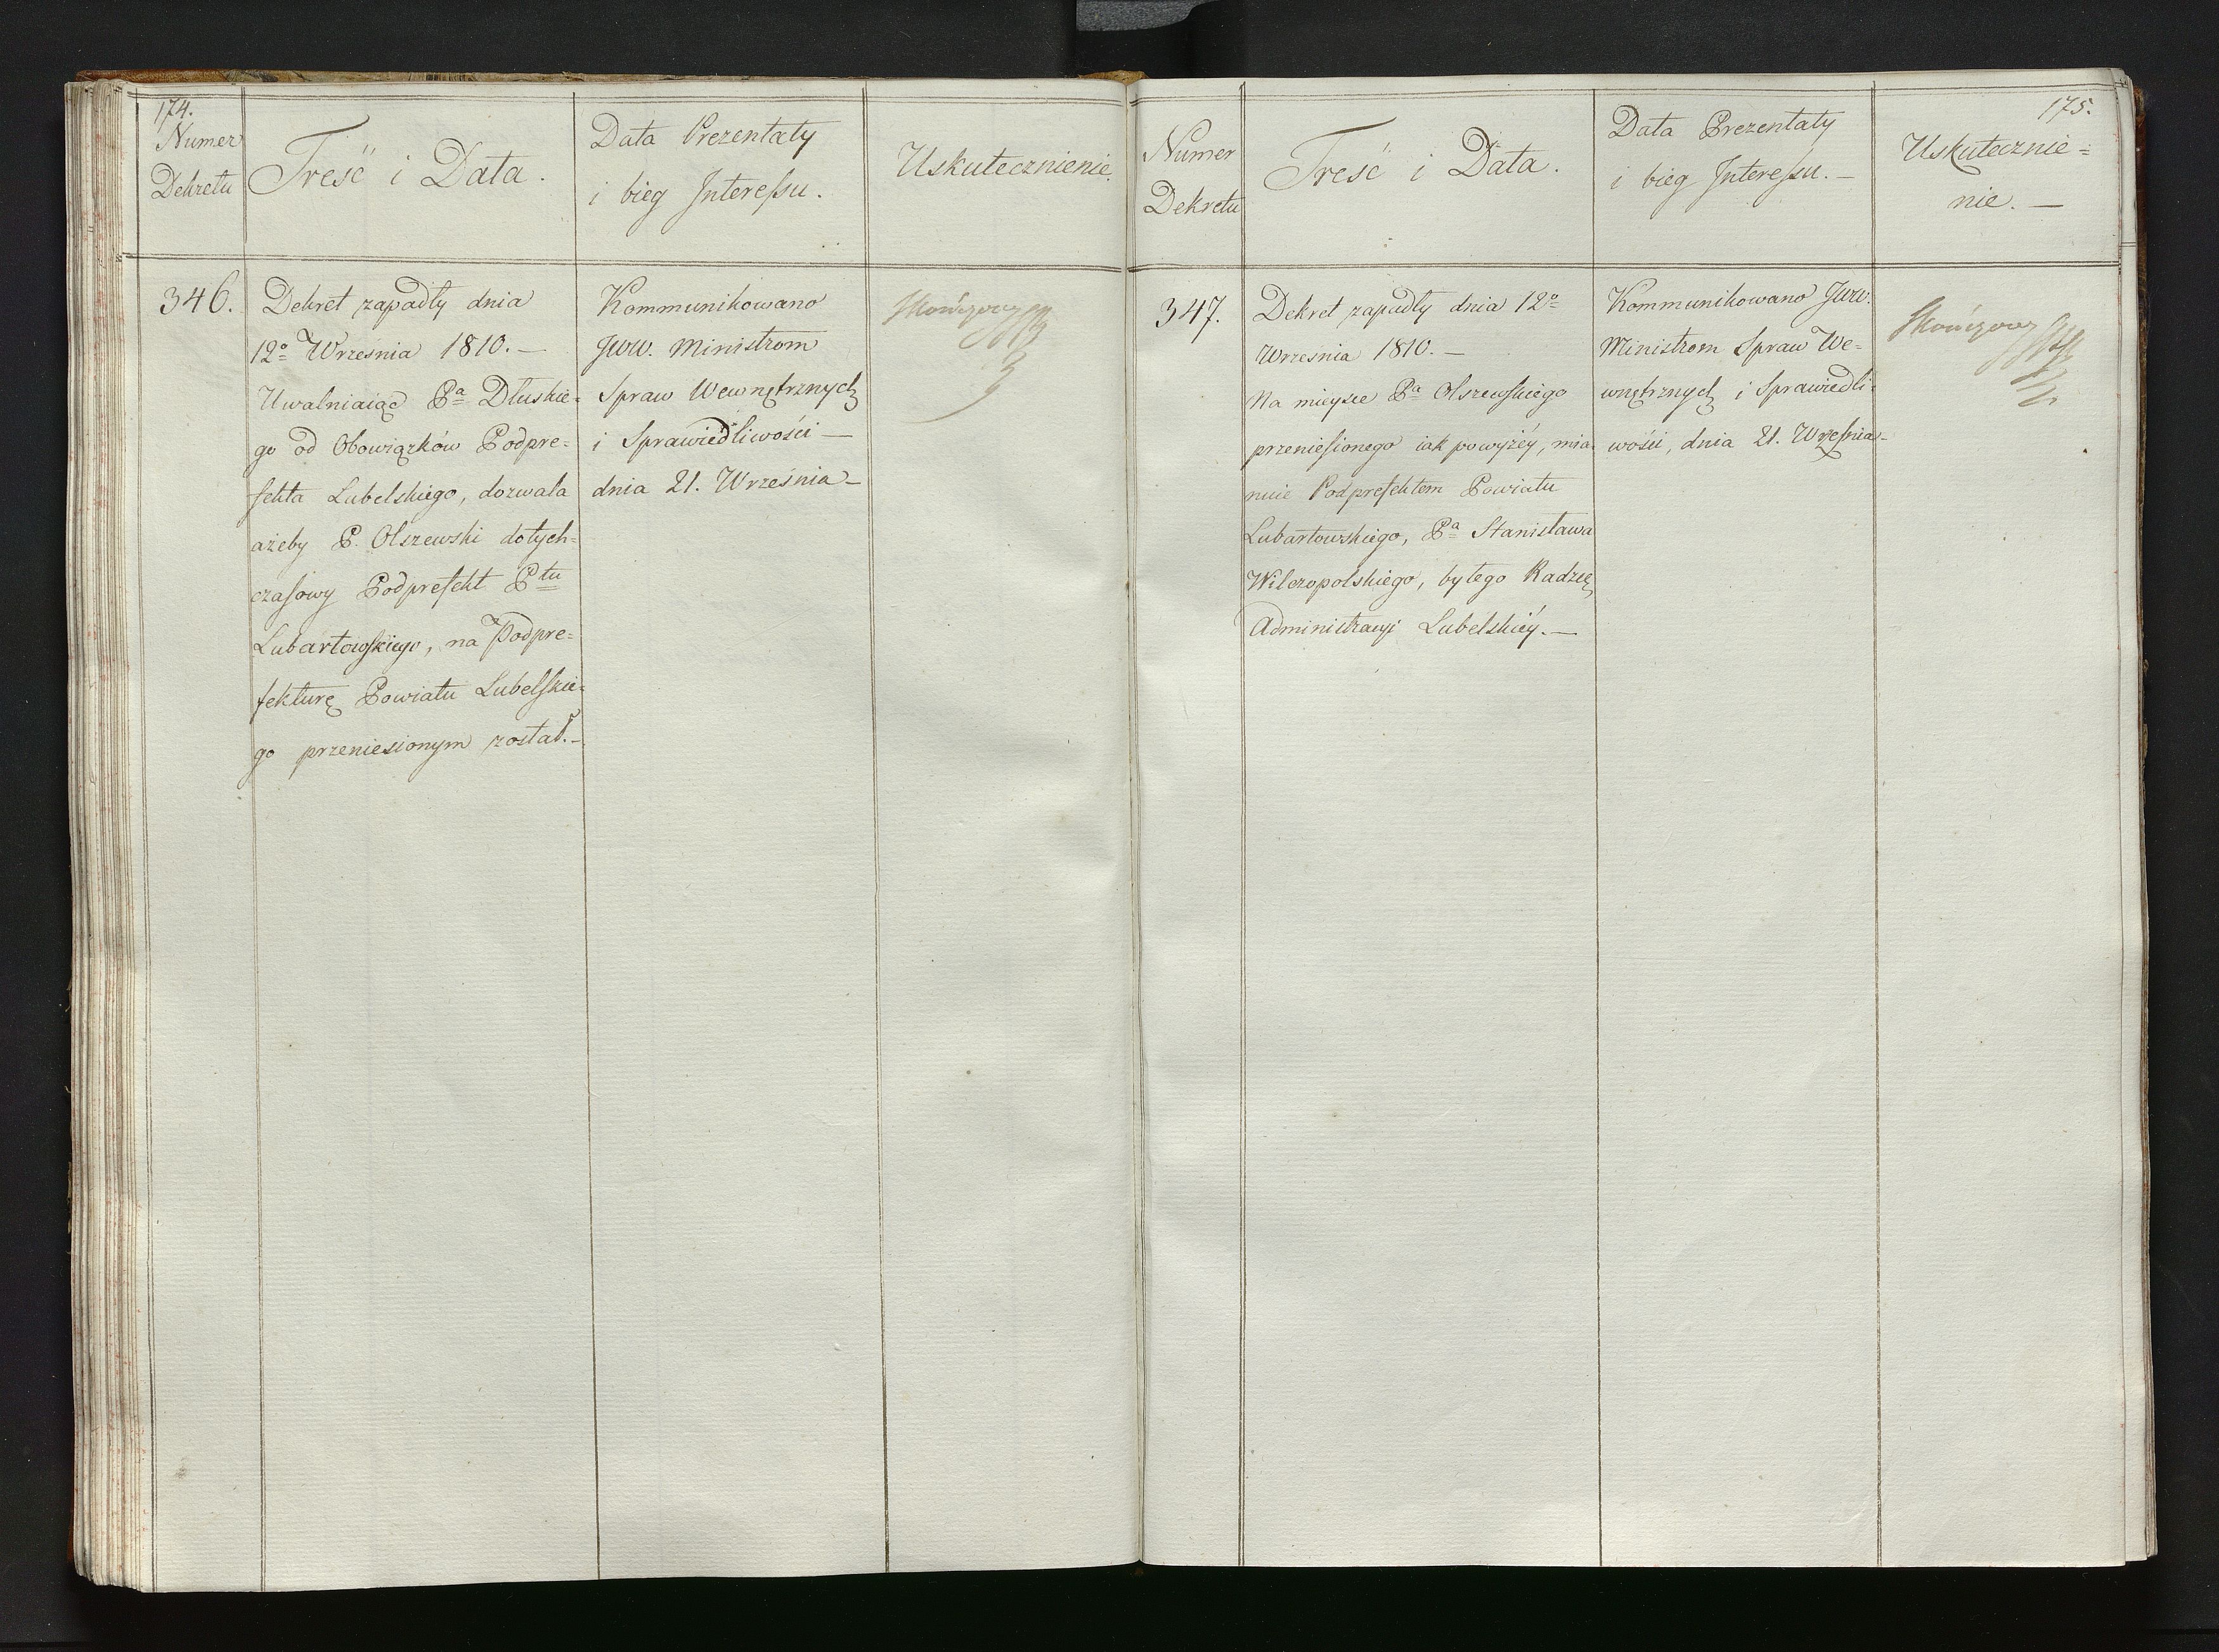 174.
Numer
Dekretu
Treść i Data.
Data Prezentaty
i bieg Interessu.
Uskutecznienie.
346.
Dekret zapadły dnia
12º Września 1810. —
Uwalniaiąc Pª Dłuskie=
go od Obowiązków Podpre=
fekta Lubelskiego, dozwala
ażeby P. Olszewski dotych=
czasowy Podprefekt Ptu
Lubartowskiego, na Podpre=
fekturę Powiatu Lubelskie=
go przeniesionym został. —
Kommunikowano
JWW. Ministrom
Spraw Wewnętrznych
i Sprawiedliwości —
dnia 21. Września —
Skończony
175.
Numer
Dekretu
Treść i Data.
Data Prezentaty
i bieg Interessu. —
Uskutecznie=
nie. —
347.
Dekret zapadły dnia 12º
Września 1810. —
Na mieysce Pª Olszewskiego
przeniesionego iak powyżéy, mia=
nuie Podprefektem Powiatu
Lubartowskiego, Pª Stanisława
Wilczopolskiego, byłego Radzcę
Administracyi Lubelskiéy. —
Kommunikowano JWW.
Ministrom Spraw We=
wnętrznych i Sprawiedli=
wości, dnia 21. Września —
Skończony